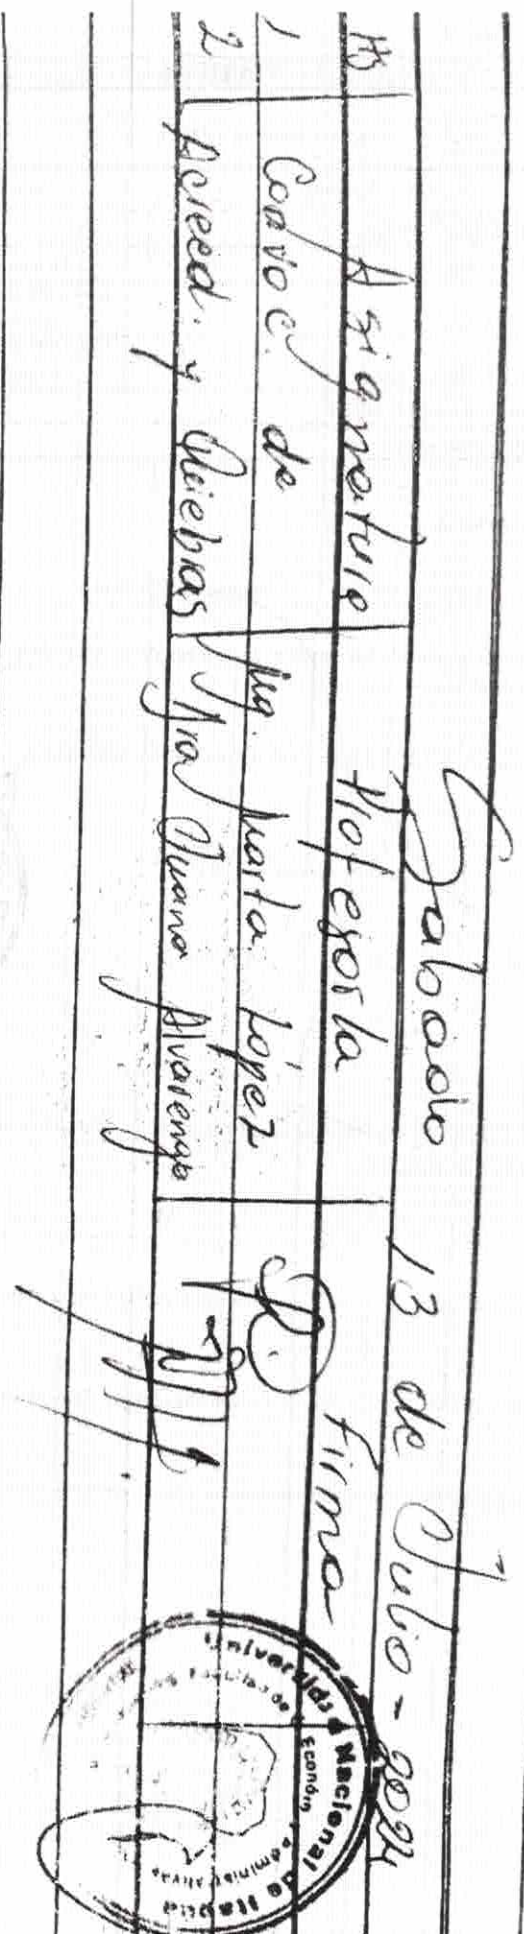 Sabado 13 de Julio - 2024
Hs Asignatura Profesor/a Firma
1 Convoc. de Mg. Marta López
2 Acreed. y Quiebras Mg. Juana Alvarenga
Universidad Nacional de Itapúa
Facultad de